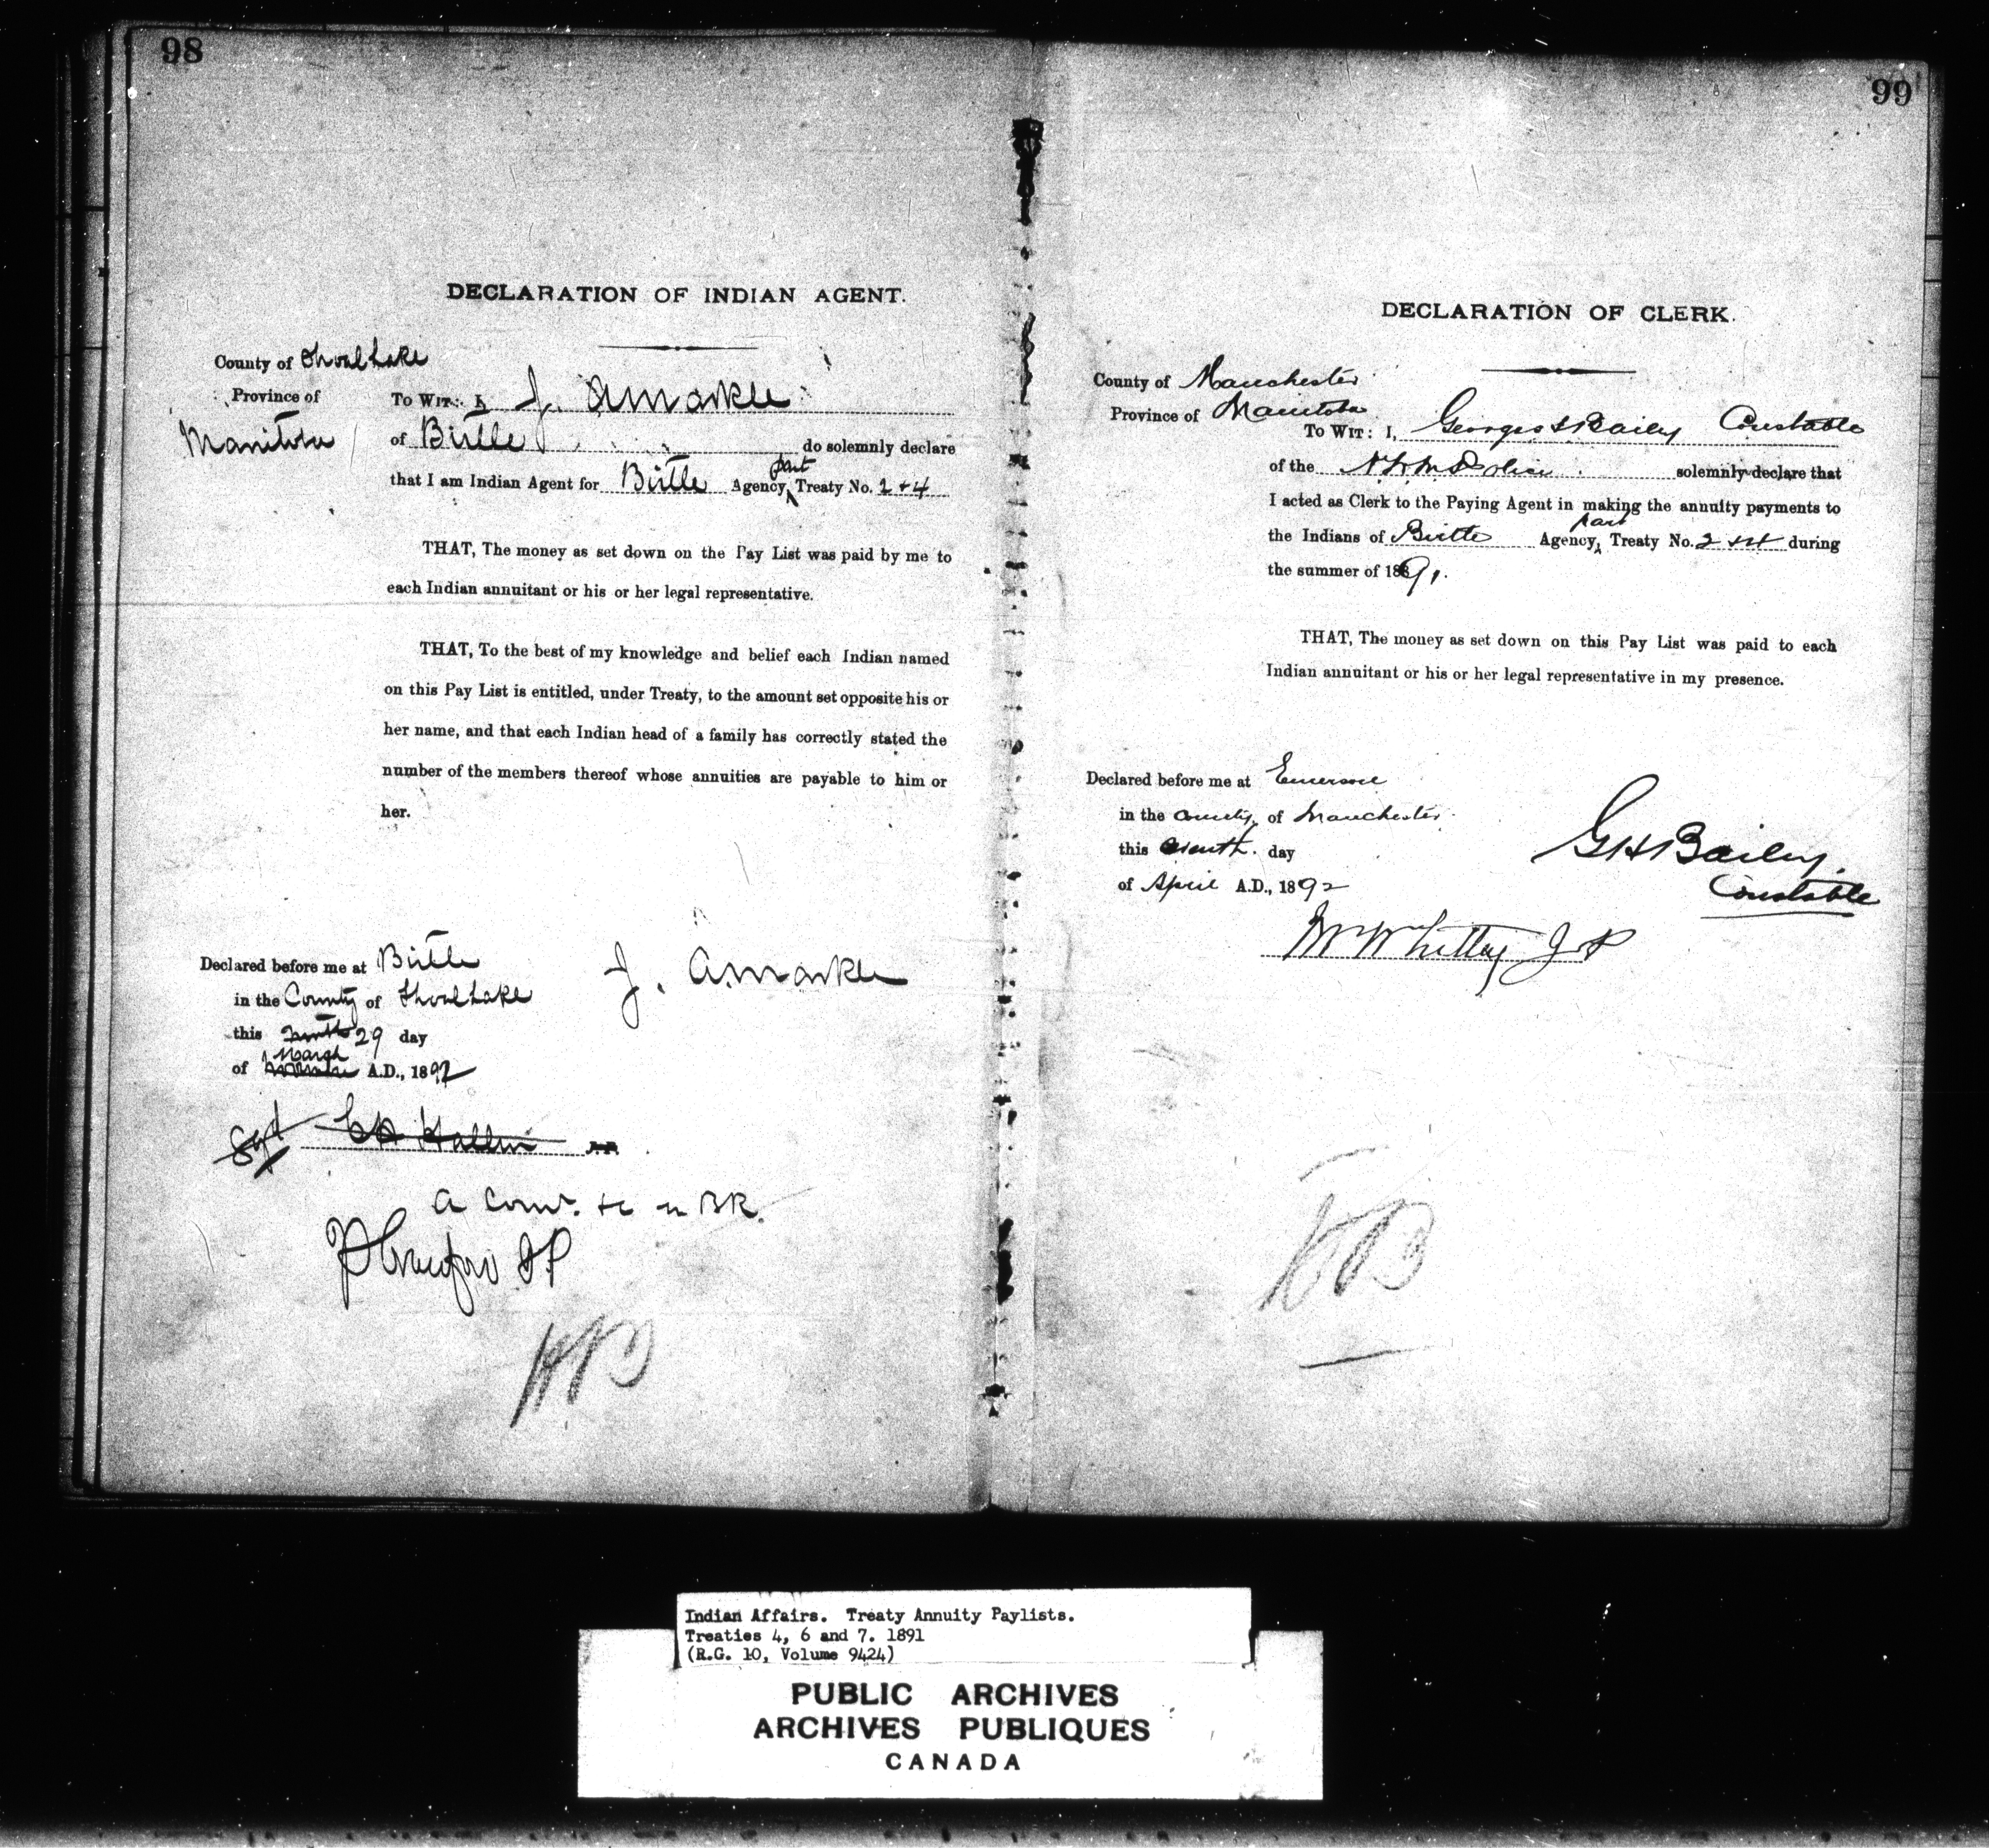 98
DECLARATION OF INDIAN AGENT.
County of Shoal Lake
Province of
Manitoba
To Wit: I, J. A Markle
of Birtle do solemnly declare
part
that I am Indian Agent for Birtle Agency, Treaty No. 2 + 4
THAT, The money as set down on the Pay List was paid by me to
each Indian annuitant or his or her legal representative.
THAT, To the best of my knowledge and belief each Indian named
on this Pay List is entitled, under Treaty, to the amount set opposite his or
her name, and that each Indian head of a family has correctly stated the
number of the members thereof whose annuities are payable to him or
her.
Declared before me at Birtle
in the County of Shoal Lake
this 29 day
March
of A.D., 1892
J. A. Markle
Sgd
A Com. in BR.
J P
99
DECLARATION OF CLERK.
County of Manchester
Province of Manitoba
To Wit: I, George H Bailey Constable
of the N.W.M. Police solemnly declare that
I acted as Clerk to the Paying Agent in making the annuity payments to
part
the Indians of Birtle Agency, Treaty No. 2 + 4 during
the summer of 1891.
THAT, The money as set down on this Pay List was paid to each
Indian annuitant or his or her legal representative in my presence.
Declared before me at Emerson
in the County of Manchester
this day
of April A.D., 1892
GH Bailey.
Constable
J P
Indian Affairs. Treaty Annuity Paylists.
Treaties 4, 6 and 7. 1891
(R.G. 10, Volume 9424)
PUBLIC ARCHIVES
ARCHIVES PUBLIQUES
CANADA